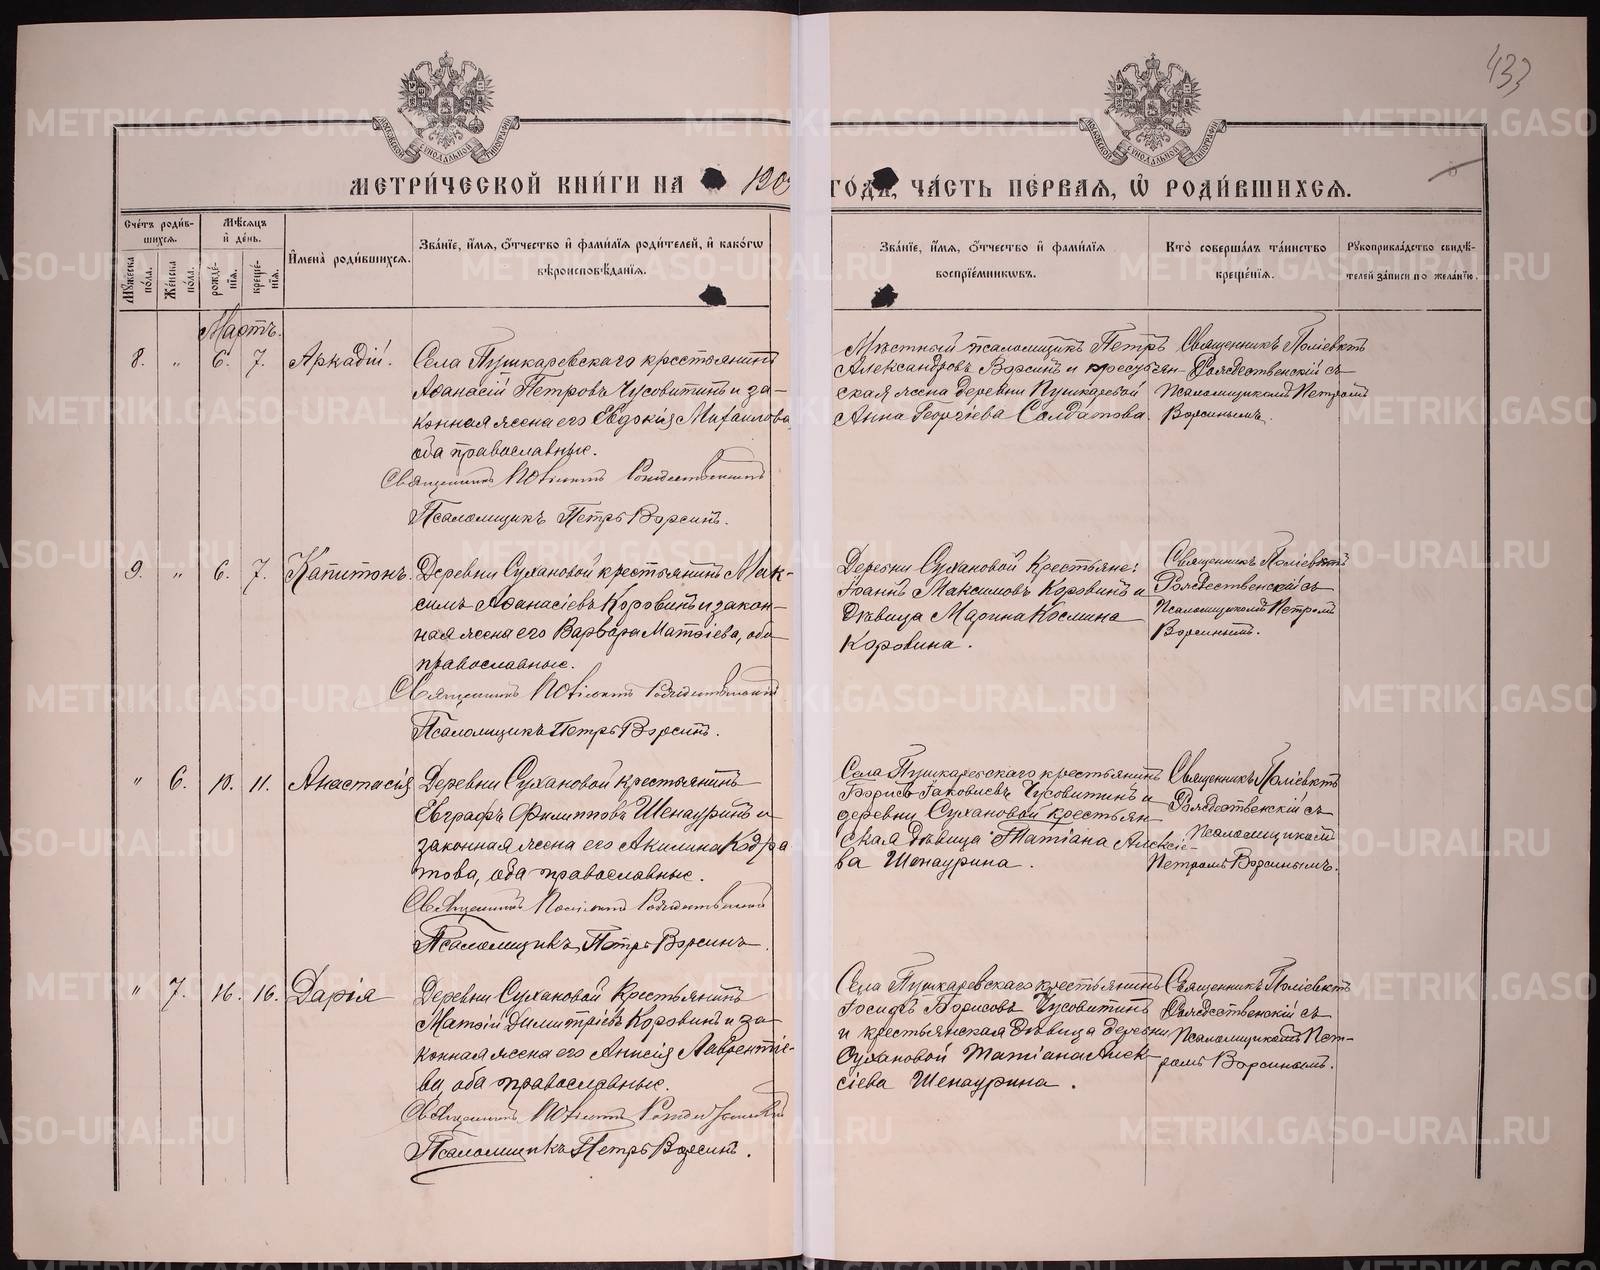 433
МЕТРИ́ЧЕСКОЙ КНИ́ГИ НА 190
ГО́ДЪ, ЧА́СТЬ ПЕ́РВАЯ, Ѡ҆ РОДИ́ВШИХСЯ.
Сче́тъ роди́в-
шихся.
Му́жеска по́ла.
Же́нска по́ла.
Мѣ́сяцъ и҆ де́нь.
рожде́-
нїя.
креще́-
нїя.
И҆мена̀ роди́вшихся.
Зва́нїе, и҆́мя, ѻ҆́тчество и҆ фами́лїя роди́телей, и҆ како́гѡ
вѣроисповѣ́данїя.
Зва́нїе, и҆́мя, ѻ҆́тчество и҆ фами́лїя
воспрїе́мникѡвъ.
Кто̀ соверша́лъ та́инство
креще́нїя.
Рꙋкоприкла́дство свидѣ́-
телей за́писи по жела́нїю.
Мартъ.
8. " 6. 7. Аркадій.
Села Пушкаревскаго крестьянинъ
Аѳанасій Петровъ Чусовитинъ и за-
конная жена его Евдокія Михаилова,
оба православные.
Священникъ Поліевктъ Рождественскій
Псаломщикъ Петръ Ворсинъ.
Мѣстный псаломщикъ Петръ
Александровъ Ворсинъ и крестьян-
ская жена деревни Пушкаревой
Анна Георгіева Солдатова.
Священникъ Поліевктъ
Рождественскій съ
Псаломщикомъ Петромъ
Ворсинымъ.
9. " 6. 7. Капитонъ.
Деревни Сухановой крестьянинъ Мак-
симъ Аѳанасіевъ Коровинъ и закон-
ная жена его Варвара Матѳіева, оба
православные.
Священникъ Поліевктъ Рождественскій
Псаломщикъ Петръ Ворсинъ.
Деревни Сухановой Крестьяне:
Іоаннъ Максимовъ Коровинъ и
Дѣвица Марина Космина
Коровина.
Священникъ Поліевктъ
Рождественскій съ
Псаломщикомъ Петромъ
Ворсинымъ.
" 6. 10. 11. Анастасія
Деревни Сухановой крестьянинъ
Евграфъ Филипповъ Шенауринъ и
законная жена его Акилина Кодра
това, оба православные.
Священникъ Поліевктъ Рождественскій
Псаломщикъ Петръ Ворсинъ.
Села Пушкаревскаго крестьянинъ
Борисъ Іаковлевъ Чусовитинъ и
деревни Сухановой крестьян
ская дѣвица Татіана Алексіе-
ва Шенаурина.
Священникъ Поліевктъ
Рождественскій съ
Псаломщикомъ
Петромъ Ворсинымъ.
" 7. 16. 16. Дарія
Деревни Сухановой Крестьянинъ
Матѳій Димитріевъ Коровинъ и за-
конная жена его Анисія Лаврентіе-
ва, оба православные.
Священникъ Поліевктъ Рождественскій
Псаломщикъ Петръ Ворсинъ.
Села Пушкаревскаго крестьянинъ
Іосифъ Борисовъ Чусовитинъ
и крестьянская дѣвица деревни
Сухановой Татіана Алек-
сіева Шенаурина.
Священникъ Поліевктъ
Рождественскій съ
Псаломщикомъ Пет-
ромъ Ворсинымъ.
METRIKI.GASO-URAL.RU